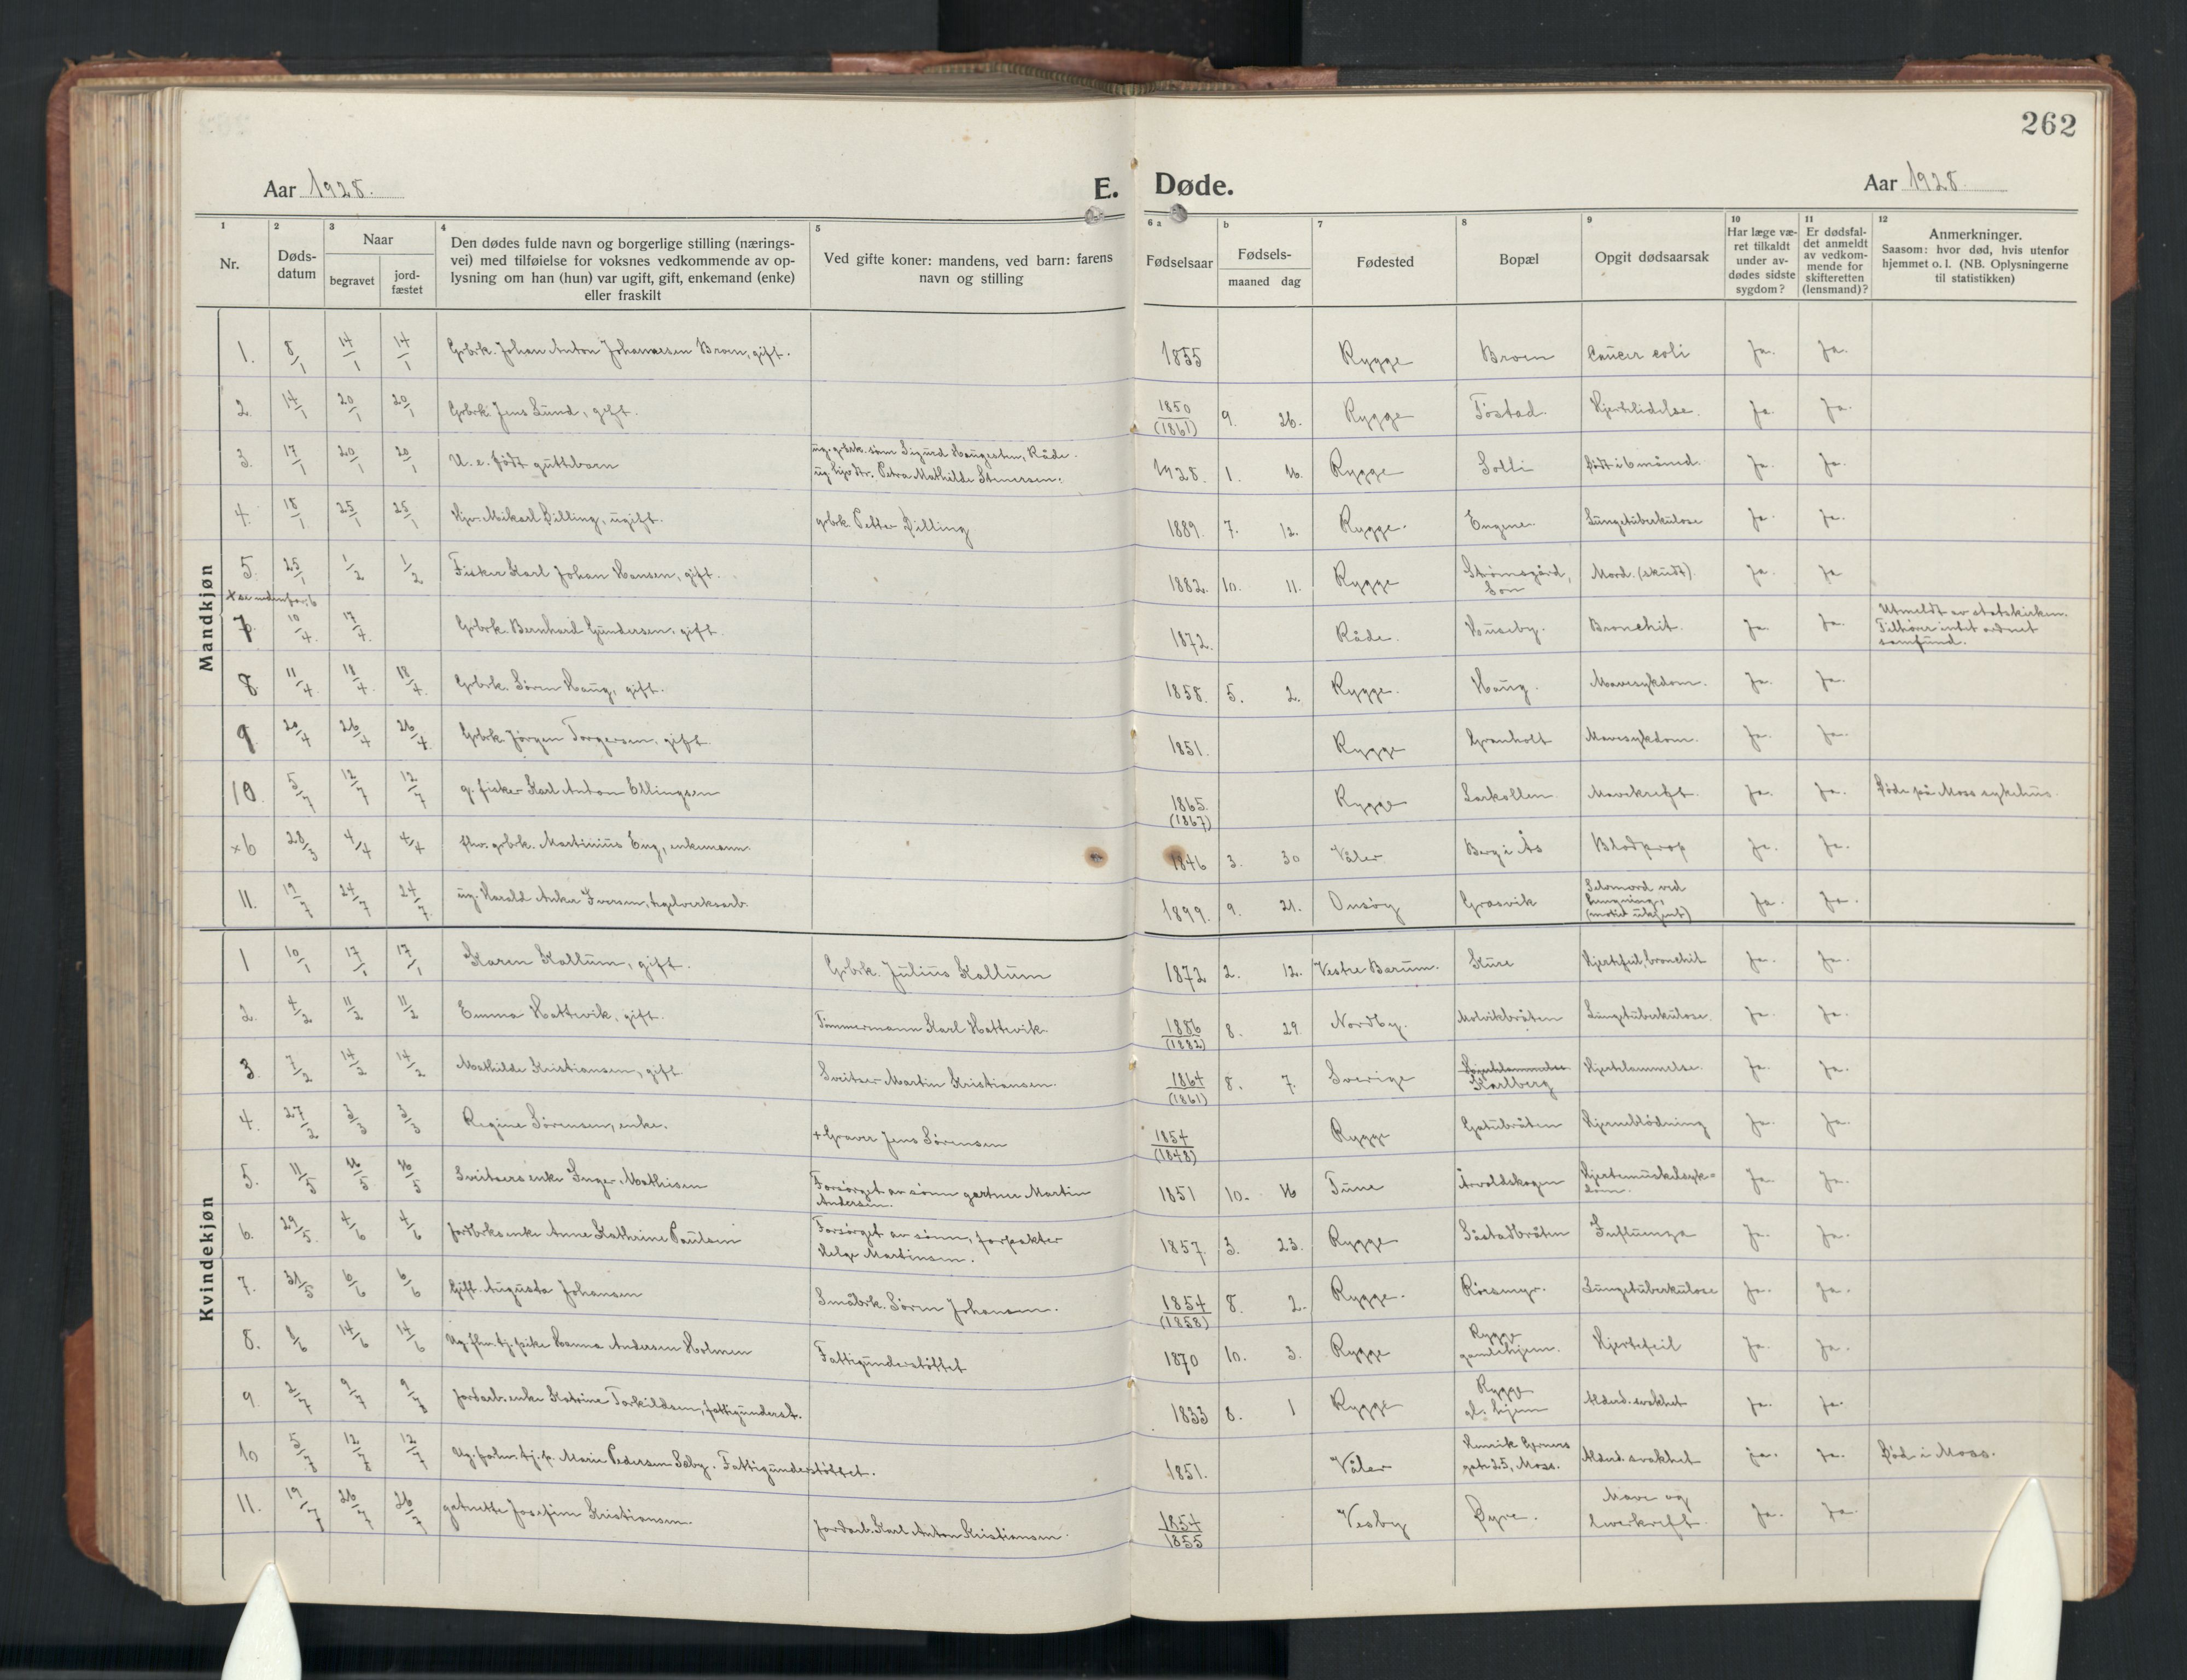 262
Aar 1928.
E. Døde.
Aar 1928.
1
2
3
4
5
6 a
b
7
8
9
10
11
12
Nr.
Døds-
datum
Naar
begravet
jord-
fæstet
Den dødes fulde navn og borgerlige stilling (nærings-
vei) med tilføielse for voksnes vedkommende av op-
lysning om han (hun) var ugift, gift, enkemand (enke)
eller fraskilt
Ved gifte koner: mandens, ved barn: farens
navn og stilling
Fødselsaar
Fødsels-
maaned dag
Fødested
Bopæl
Opgit dødsaarsak
Har læge væ-
ret tilkaldt
under av-
dødes sidste
sygdom?
Er dødsfal-
det anmeldt
av vedkom-
mende for
skifteretten
(lensmand)?
Anmerkninger.
Saasom: hvor død, hvis utenfor
hjemmet o. l. (NB. Oplysningerne
til statistikken)
Mandkjøn
1. 8/1 14/1 14/1 Grbrk. Johan Anton Johannesen Broen, gift. 1855 Rygge Broen Cancer coli Ja. Ja.
2. 14/1 20/1 20/1 Grbrk. Jens Lund, gift. 1850 (1861) 9. 26. Rygge Tostad. Hjertelidelse. Ja. Ja.
3. 17/1 20/1 20/1 U. e. født guttebarn ug. grbrk. sønn Sigurd Haugesten, Råde.
ug. hjv. dtr. Petra Mathilde Stenersen. 1928. 1. 16. Rygge Solli født i 6 måned. Ja. Ja.
4. 18/1 25/1 25/1 Hjv. Mikael Dilling, ugift. grbrk. Petter Dilling 1889. 7. 12. Rygge. Engene. Lungetuberkulose Ja. Ja.
5. 25/1 1/2 1/2 Fisker Karl Johan Hansen, gift. 1882. 10. 11. Rygge Strømsgård,
Son Mord. (skudt). Ja. Ja
x se nedenfor: 6
7. 10/4. 17/4. Grbrk. Bernhard Gundersen, gift. 1872. Råde. Huseby. Bronchit. Ja. Ja. Utmeldt av statskirken.
Tilhører intet ordnet
samfund.
8 11/4. 18/4. 18/4. Grbrk. Søren Haug, gift. 1858. 5. 2. Rygge. Haug. Mavesykdom. Ja. Ja.
9. 20/4 26/4 26/4. Grbrk. Jørgen Torgersen, gift. 1851. Rygge Granholt Mavesykdom. Ja. Ja.
10. 5/7 12/7 12/7 g. fisker Karl Anton Ellingsen 1865. (1867) Rygge Larkollen. Mavekreft. Ja. Ja. Døde på Moss sykehus.
x6 28/3 4/4 4/4 fhv. grbrk. Martinius Eng, enkemann. 1846 3. 30 Våler Berg i Ås Blodprop Ja. Ja.
11. 19/7 24/7 24/7. ug. Harald Anker Iversen, teglverksarb. 1899. 9. 21. Onsøy Grasvik Selvmord ved
hengning,
(motiv ukjent) Ja. Ja.
Kvindekjøn
1 10/1 17/1 17/1 Karen Kallum, gift. Grbrk. Julius Kallum 1872 2. 12. Vestre Bærum. Kure Hjertefeil, bronchit Ja. Ja.
2. 4/2 11/2 11/2 Emma Hattevik, gift. Tømmermann Karl Hattevik. 1886 (1882) 8. 29. Nordby. Molvikbråten Lungetuberkulose. Ja. Ja.
3. 7/2 14/2 14/2 Mathilde Kristiansen, gift Sveitser Martin Kristiansen. 1864 (1861) 8. 7. Sverige Hjertelammelse
Karlberg Hjertelammelse. Ja. Ja.
4. 27/2 3/3 3/3 Regine Sørensen, enke. + Graver Jens Sørensen 1854 (1848) Rygge Gatubråten Hjerneblödning Ja. Ja.
5. 11/5 16/5 16/5 Sveitsers enke Inger Mathisen Forsørget av sønn gartner Martin
Andersen. 1851 10. 16 Tune Årvoldskogen Hjertemuskelsyk=
dom. Ja. Ja.
6. 29/5. 4/6 4/6 Jordbrks enke Anne Kathrine Paulsen Forsørget av sønn, forpakter
Helge Martinsen. 1857. 3. 23. Rygge Såstadbråten Influenza Ja. Ja.
7. 31/5 6/6 6/6 Gift. Augusta Johansen Småbrk. Sören Johansen. 1854 (1858) 8. 2. Rygge. Roesmyr. Lungetuberkulose Ja. Ja.
8. 8/6 14/6 14/6 Ug. fhv. tj. pike Hanna Andersen Holmen Fattigunderstöttet 1870 10. 3. Rygge Rygge
gamlehjem. Hjertefeil Ja. Ja.
9. 2/7 9/7 9/7 Jordarb. enke Katrine Torkildsen, fattigunderst. 1833 8. 1 Rygge Rygge
gl. hjem Alderd. svakhet Ja. Ja.
10 5/7 12/7 12/7 Ug. forhv. tj. p. Marie Pedersen Sæby. Fattigunderstöttet. 1851. Våler Henrik Gerners
gate 25, Moss. Alderd. svakhet Ja. Ja. Død i Moss.
11. 19/7 26/7 26/7 Josefine Kristiansen. Jordarb. Karl Anton Kristiansen. 1854 1855 Vesby Øyre. Mave og
leverkreft. Ja. Ja.